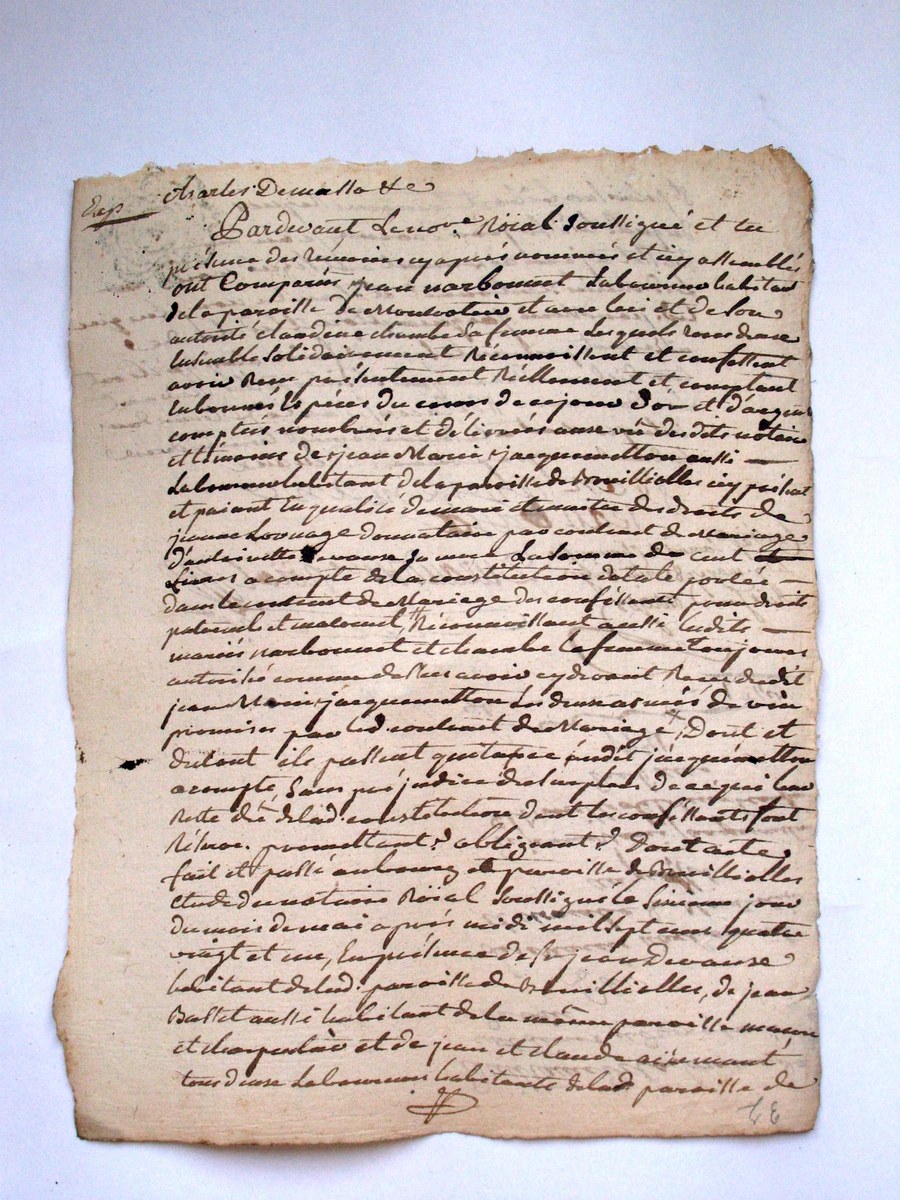 Exp
Charles Demassa &c
Pardevant Le not.e Roïal Soussigné et en
présence des témoins cy après nommés et icy assemblés
ont Comparus jean narbonnet Laboureur habitant
de la paroisse de et avec lui et de Son
autorité claudine chambe Sa femme Lesquels tous deux
Ensemble Solidairement Reconnoissent et confessent
avoir Reçu présentement Réellement et comptant
En bonnes Espèces du cours de ce jour d'or et d'argent
comptés nombrés et délivrés au vu des dits notaire
et témoins de jean Marie jacquemetton aussi
Laboureur habitant de la paroisse de icy présent
et paiant En qualité de mari et maitre des droits de
jeanne donnataire par contrat de Mariage
d'antoinette Sa mere La Somme de cent
Livres a compte de la constitution dotale portée
dans le contrat de Mariage des confessants pour droits
paternels et maternels, Reconnoissant aussi Lesdits
mariés narbonnet et chambe La femme toujours
autorisée comme dessus avoir cy devant Reçu dudit
jean Marie jacquemetton Les deux anées de vin
promises par led. contract de Mariage, Dont et
du tout ils passent quitance audit jacquemetton
a compte, Sans préjudice du Surplus de ce qui Leur
Reste dû de lad. constitution dont les confessants font
Réserve. promettant &c obligeant &c Dont acte
fait et passé au bourg et paroisse de
etude du notaire Roïal Soussigné le Sixieme jour
du mois de mai après midi mil Sept cent quatre
vingt et un, En présence de S.r jean Devause
habitant de lad. paroisse de, de jean
Basset aussi habitant de la même paroisse
et charpentier et de jean et claude
tous deux Laboureurs habitants de lad. paroisse de